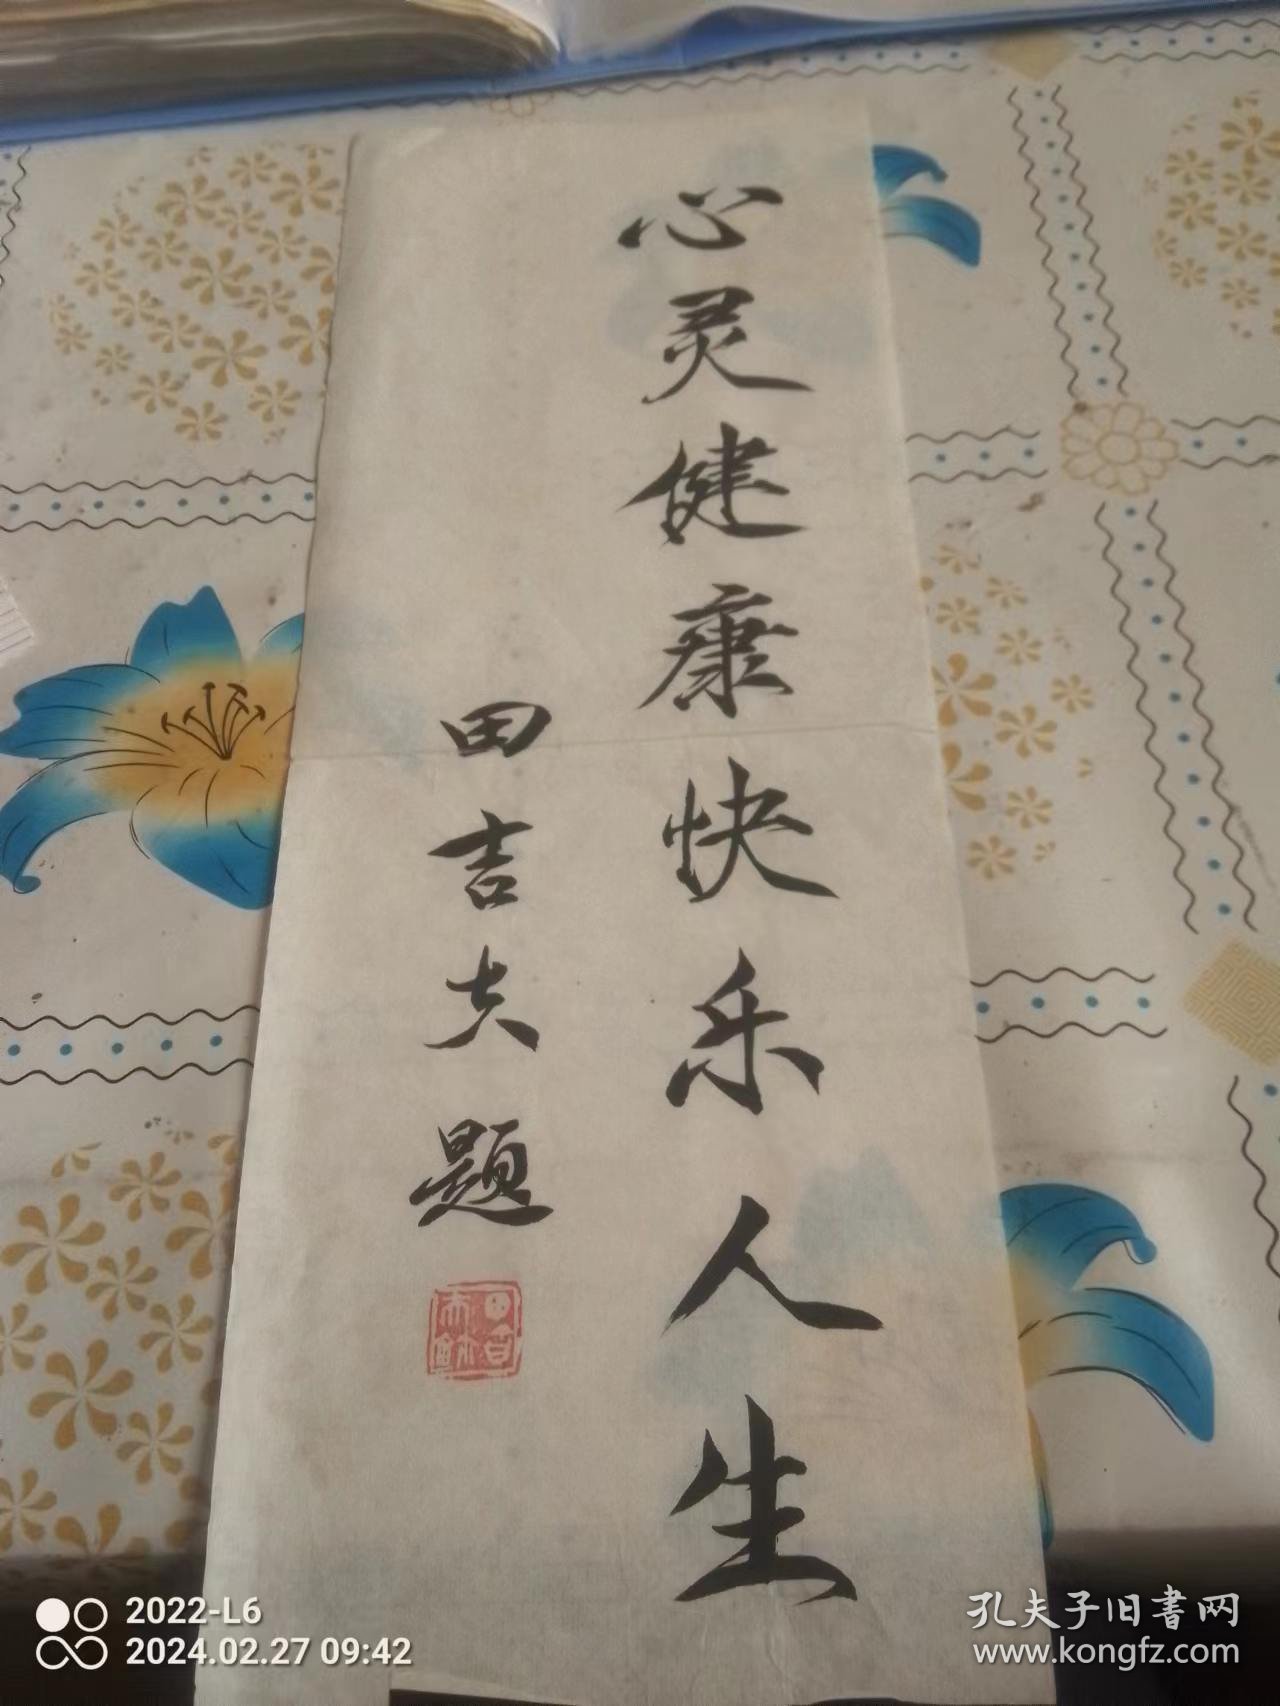 心灵健康快乐人生
田吉夫题
2022-L6
2024.02.27 09:42
孔夫子旧书网
www.kongfz.com